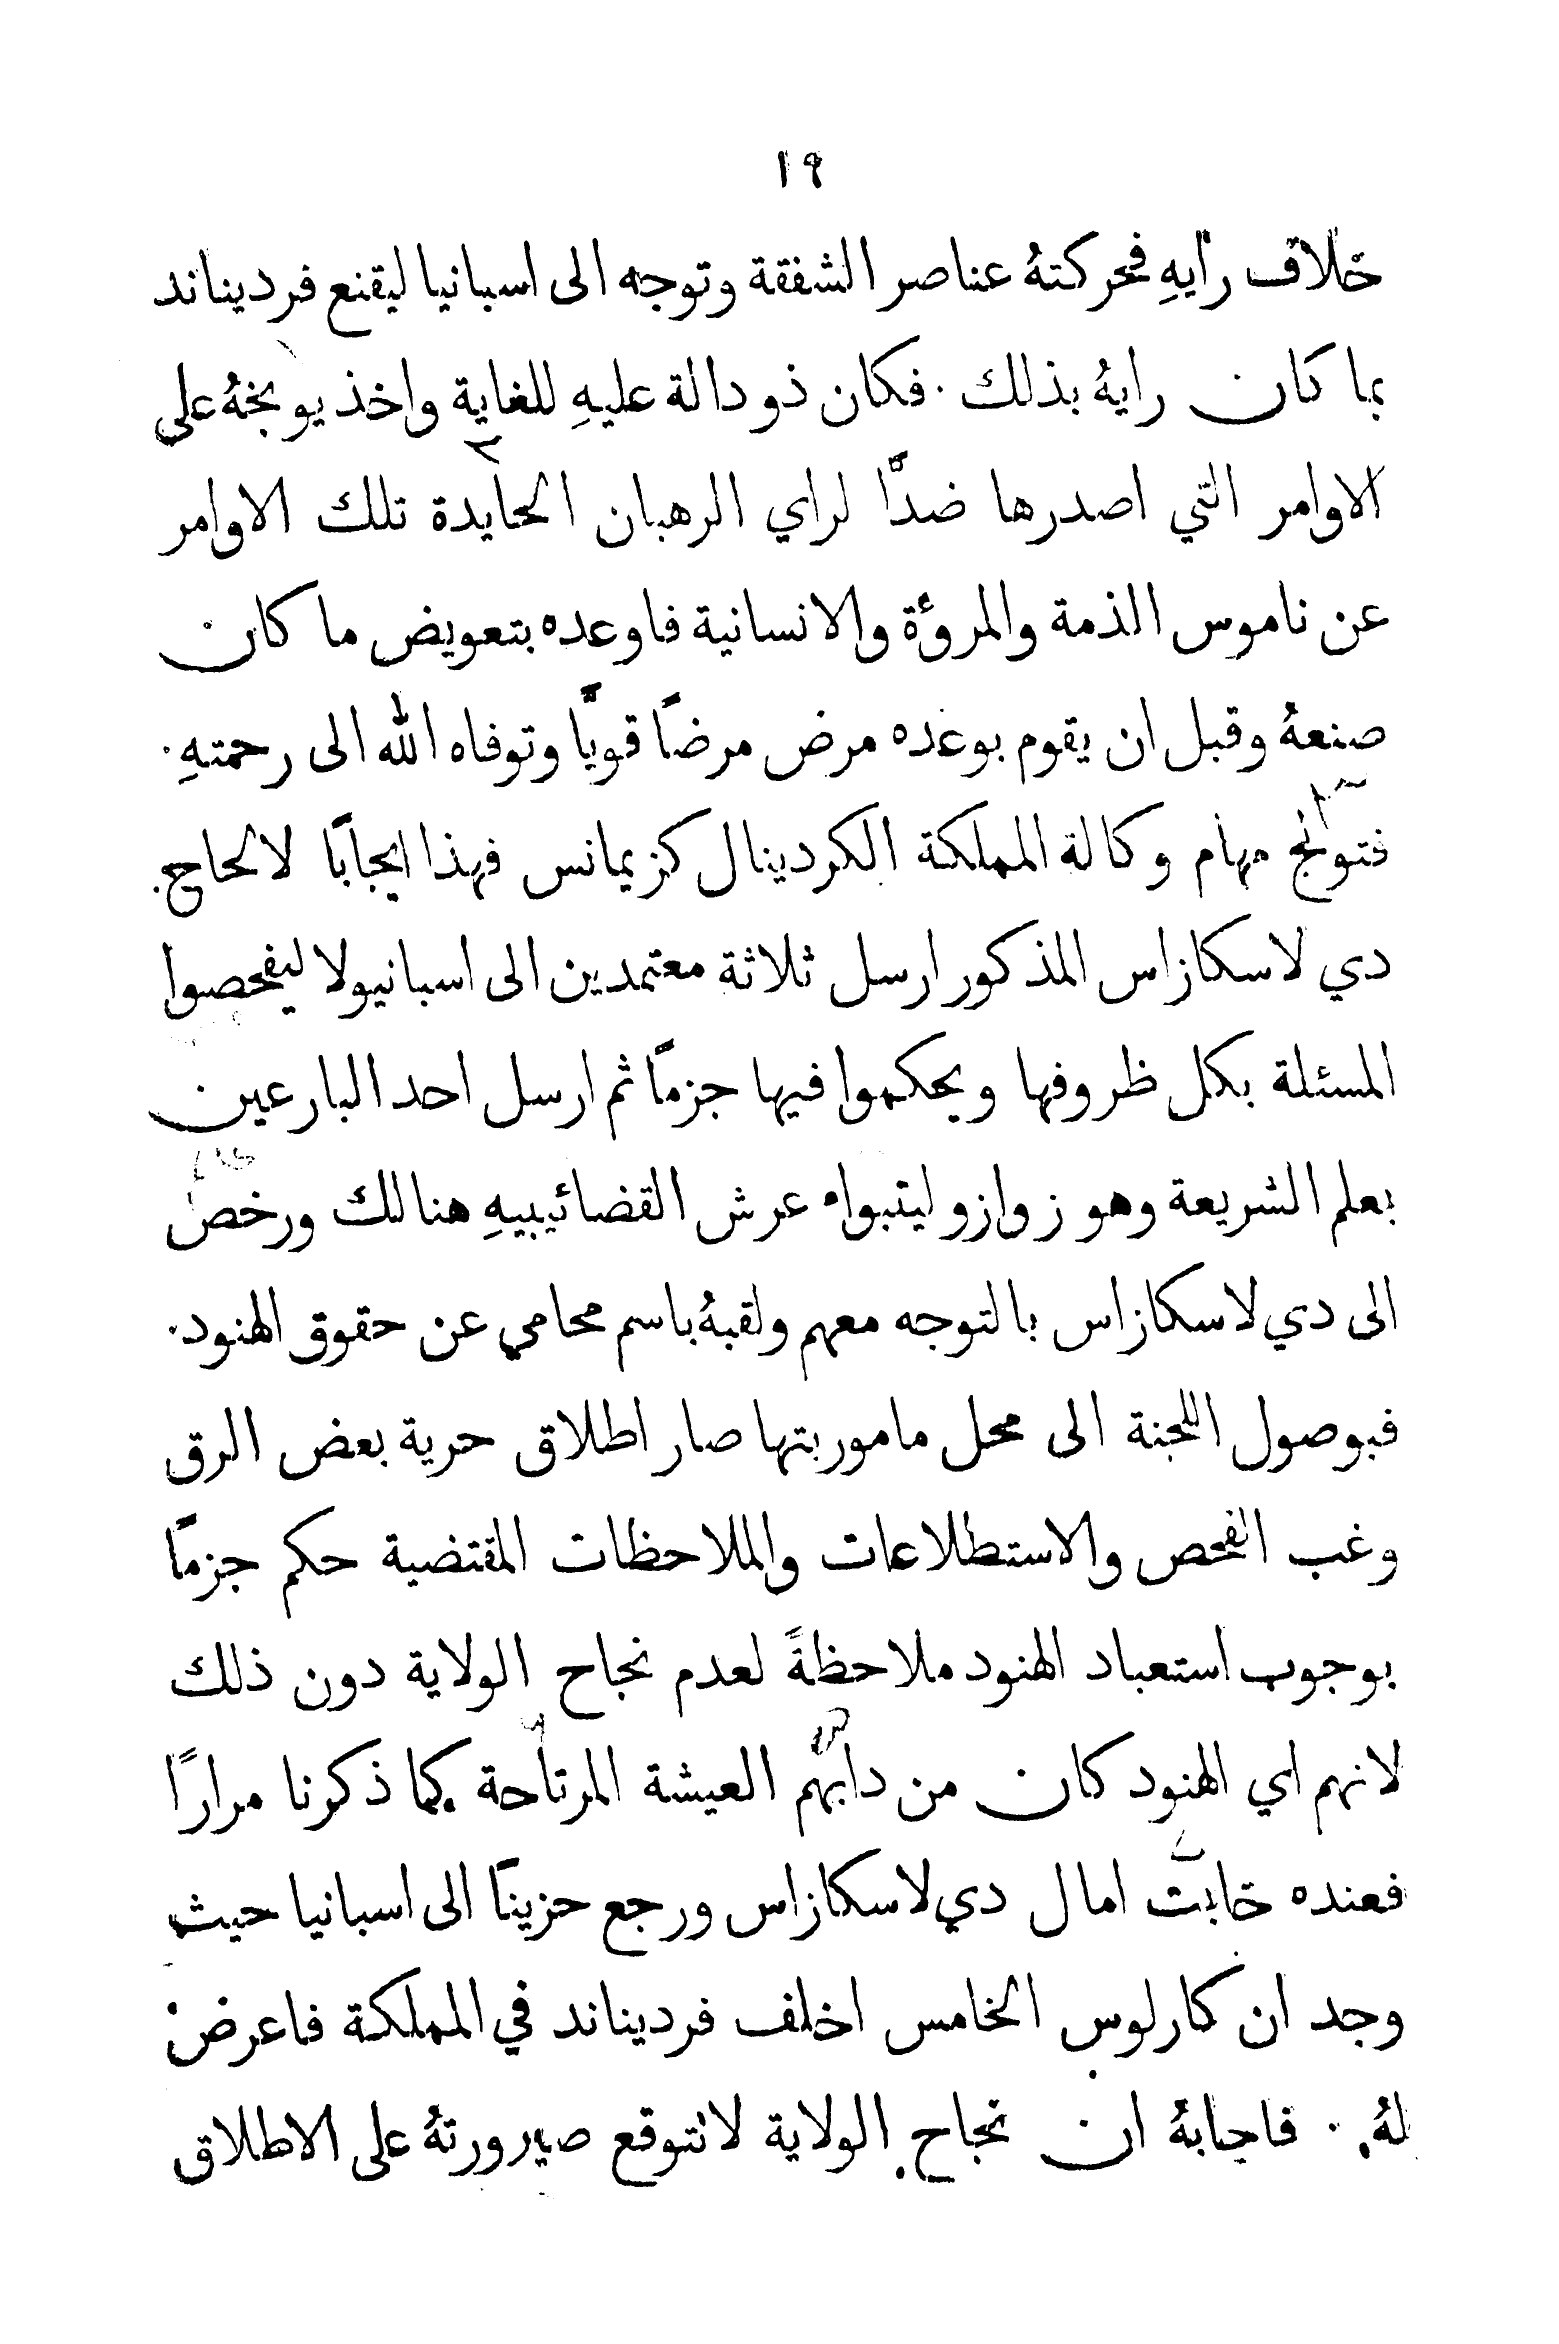 ١٩
خلاف رأيهِ فحركتهُ عناصر الشفقة وتوجه الى اسبانيا ليقنع فرديناند
بما كان رايهُ بذلك . فكان ذو دالة عليهِ للغاية واخذ يوبخهُ على
الاوامر التي اصدرها ضدًّا لراي الرهبان الحايدة تلك الاوامر
عن ناموس الذمة والمروٴة والانسانية فاوعده بتعويض ما كان
صنعهُ وقبل ان يقوم بوعده مرض مرضًا قويًّا وتوفاه الله الى رحمتهِ .
مهام وكالة المملكة الكردينال كزيمانس فهذا ايجابًا لالحاح
دي لاسكازاس المذكور ارسل ثلاثة معتمدين الى اسبانيولا ليفحصوا
المسئلة بكل ظروفها ويحكموا فيها جزمًا ثم ارسل احد البارعين
بعلم الشريعة وهو زوازو ليتبواء عرش القضائيبيهِ هنالك ورخص
الى دي لاسكازاس بالتوجه معهم ولقبهُ باسم محامي عن حقوق الهنود .
فبوصول اللجنة الى محل ماموريتها صار اطلاق حرية بعض الرق
وغب الفحص والاستطلاعات والملاحظات المقتضية حكم جزمًا
بوجوب استعباد الهنود ملاحظةً لعدم نجاح الولاية دون ذلك
لانهم اي الهنود كان من دأبهم العيشة المرتاحة كما ذكرنا مرارًا
فعنده خابت امال دي لاسكازاس ورجع حزينًا الى اسبانيا حيث
وجد ان كارلوس الخامس اخلف فرديناند في المملكة فاعرض
لهُ . فاجابهُ ان نجاح الولاية لا تتوقع صيرورتهُ على الاطلاق